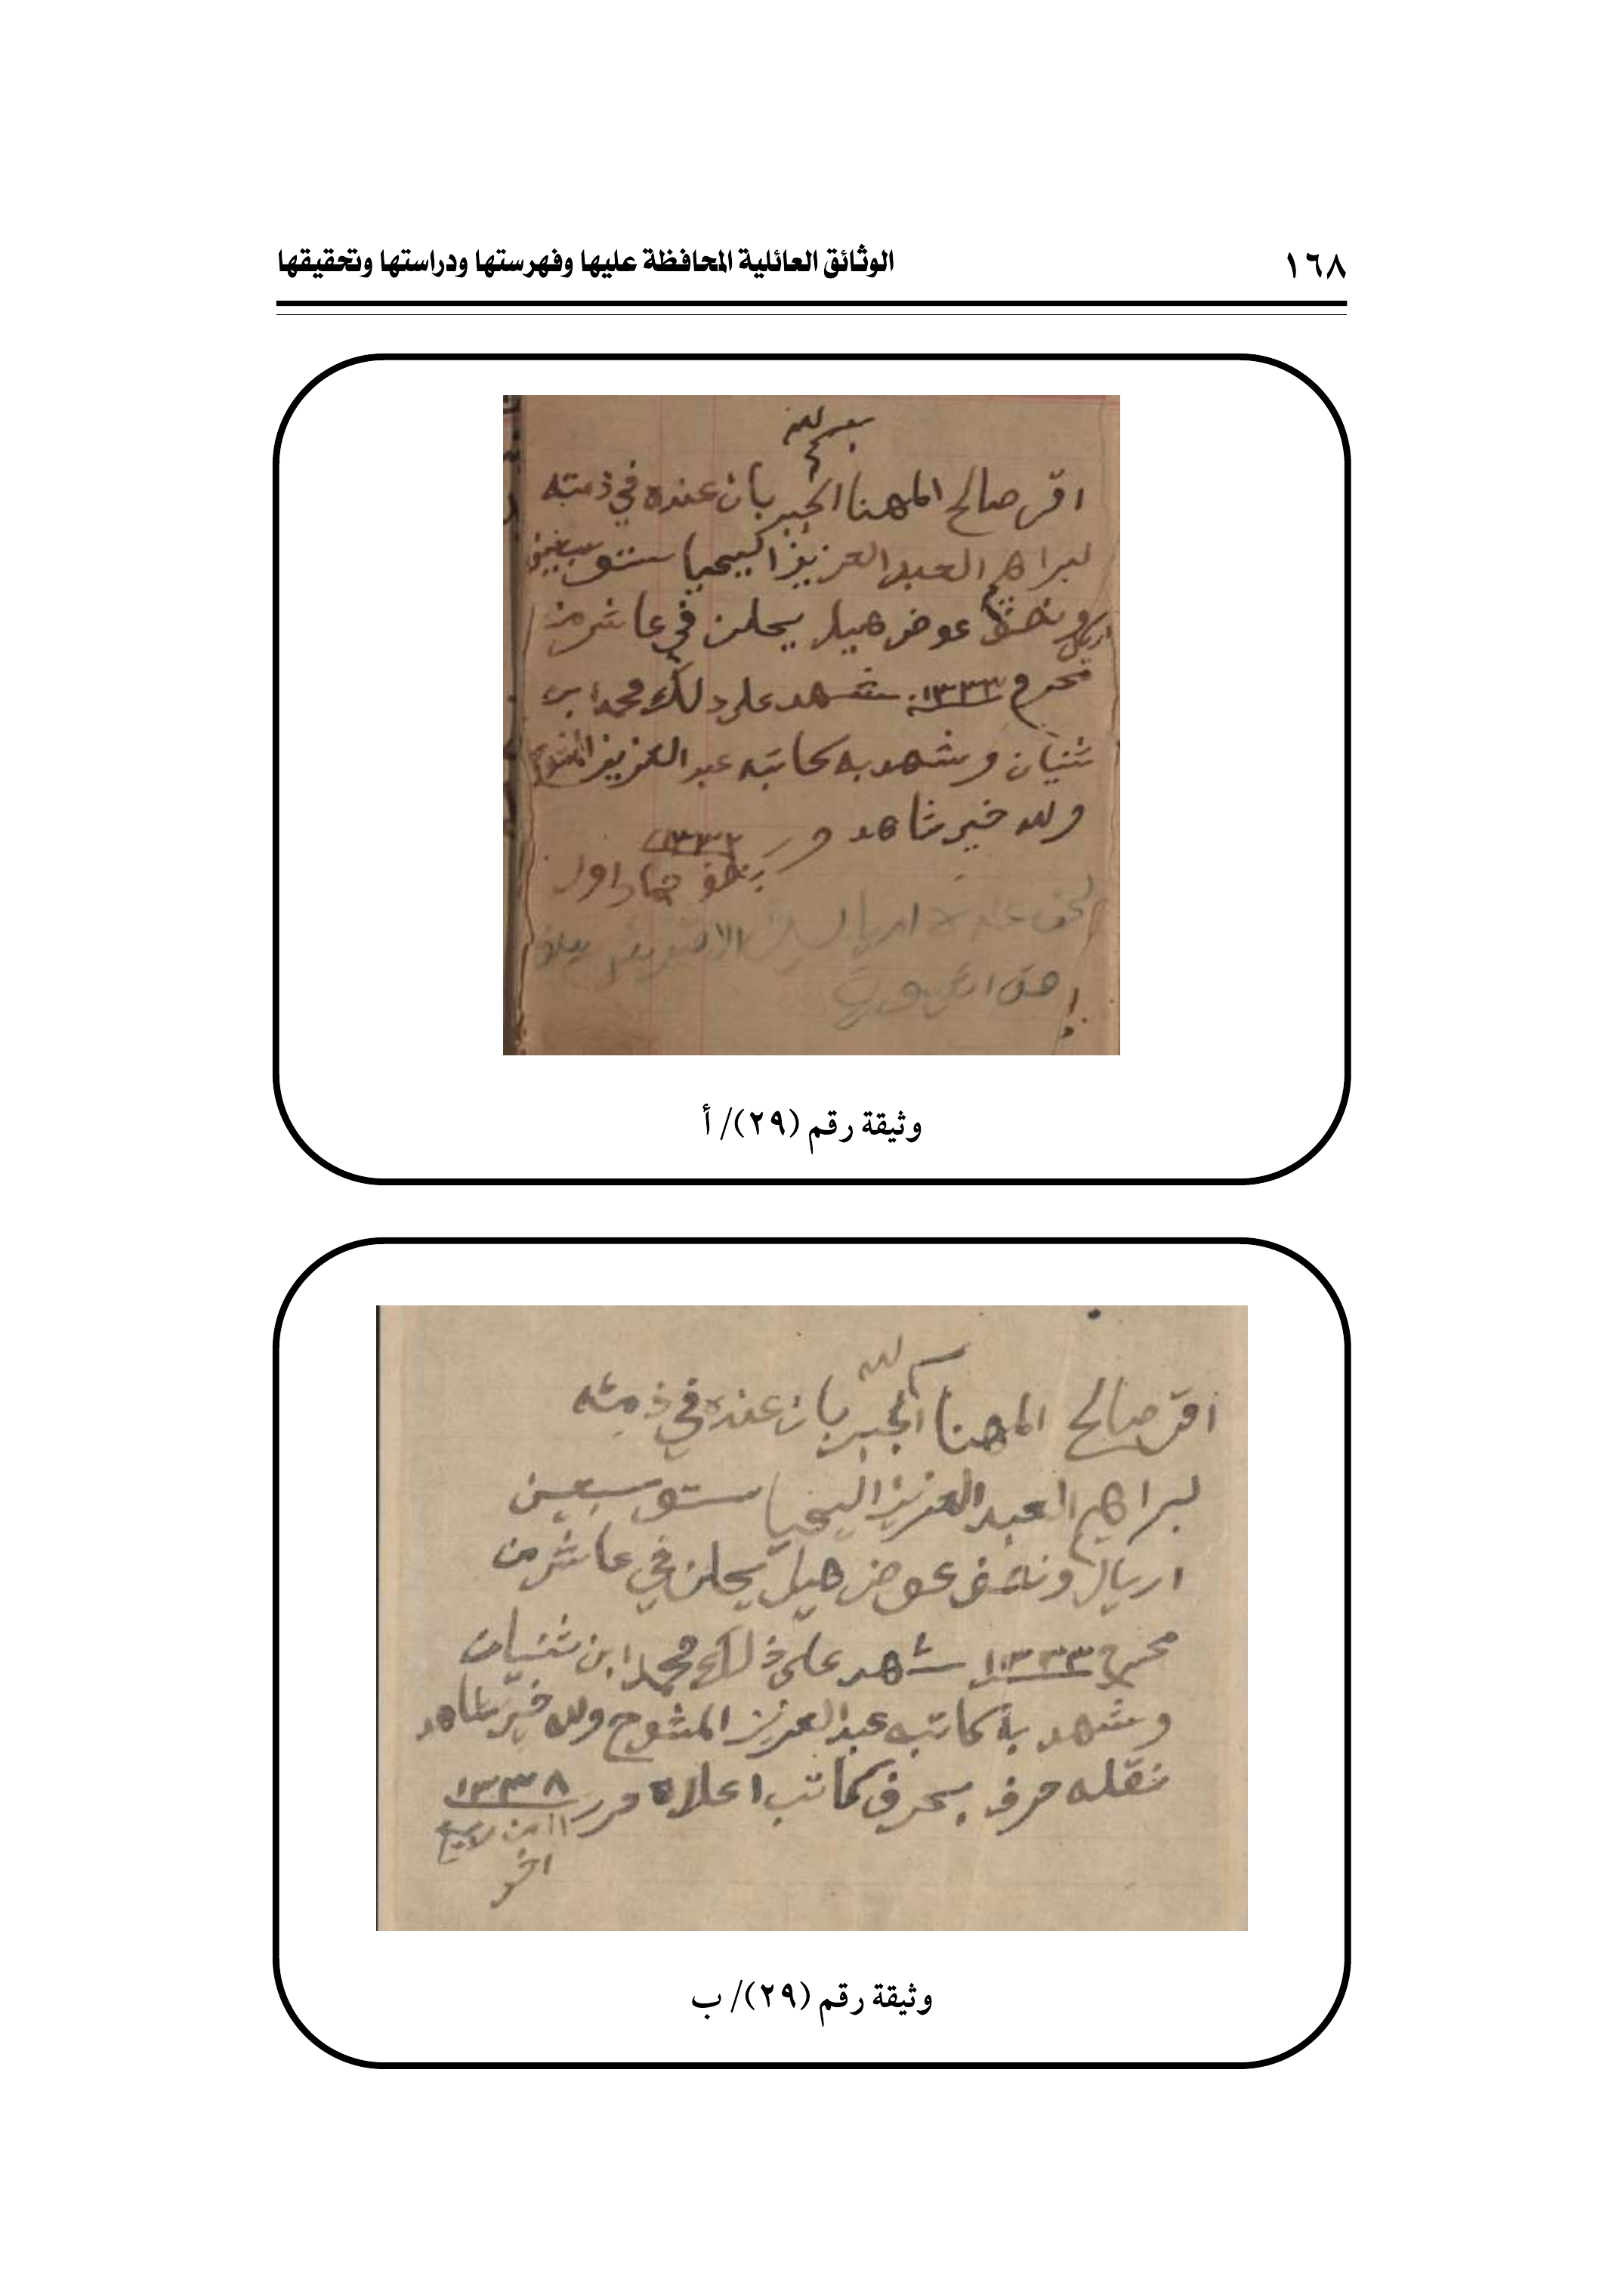 ١٦٨
الوثائق العائلية المحافظة عليها وفهرستها ودراستها وتحقيقها
بسم لله
اقر صالح المهنا الجبر بان عنده في ذمته
لبراهيم العبد العزيز اليحيا ستو سبعين
اريال ونصف عوض هيل يحلن في عاشر من
محرم ١٣٣٣ شهد على ذلك محمد ابن
ثنيان وشهد به كاتبه عبد العزيز المشوح
ولله خير شاهد
جماد اول
وثيقة رقم (٢٩)/ أ
بسم لله
اقر صالح المهنا الجبر بان عنده في ذمته
لبراهيم العبد العزيز اليحيا ستو سبعين
اريال ونصف عوض هيل يحلن في عاشر من
محرم ١٣٣٣ شهد على ذلك محمد ابن ثنيان
وشهد به كاتبه عبد العزيز المشوح ولله خير شاهد
نقله حرف بحرف كاتب اعلاه حرر ١٣٣٨
١١ من ربيع
اخر
وثيقة رقم (٢٩)/ ب